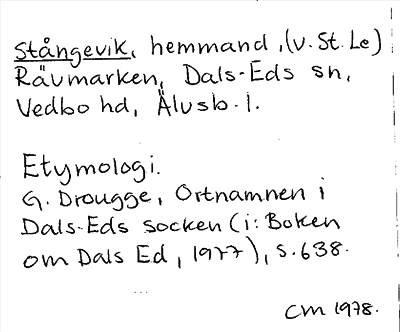 Stångevik, hemmand, (v. St. Le)
Rävmarken, Dals-Eds sn,
Vedbo hd, Älvsb. l.
Etymologi.
G. Drougge, Ortnamnen i
Dals-Eds socken (i: Boken
om Dals Ed, 1977), s. 638.
CM 1978.